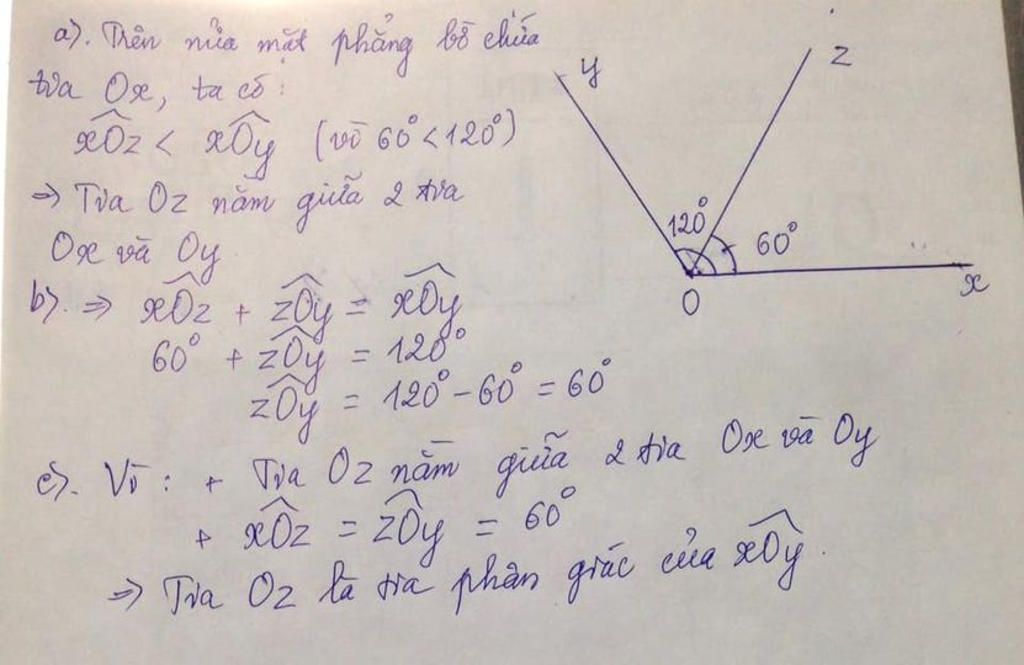 a). Trên nửa mặt phẳng bờ chứa
tia Ox, ta có:
xÔz < xÔy (vì 60° < 120°)
⇒ Tia Oz nằm giữa 2 tia
Ox và Oy
b). ⇒ xÔz + zÔy = xÔy
60° + zÔy = 120°
zÔy = 120° - 60° = 60°
c). Vì : + Tia Oz nằm giữa 2 tia Ox và Oy
+ xÔz = zÔy = 60°
⇒ Tia Oz là tia phân giác của xÔy.
y
z
120°
60°
O
x